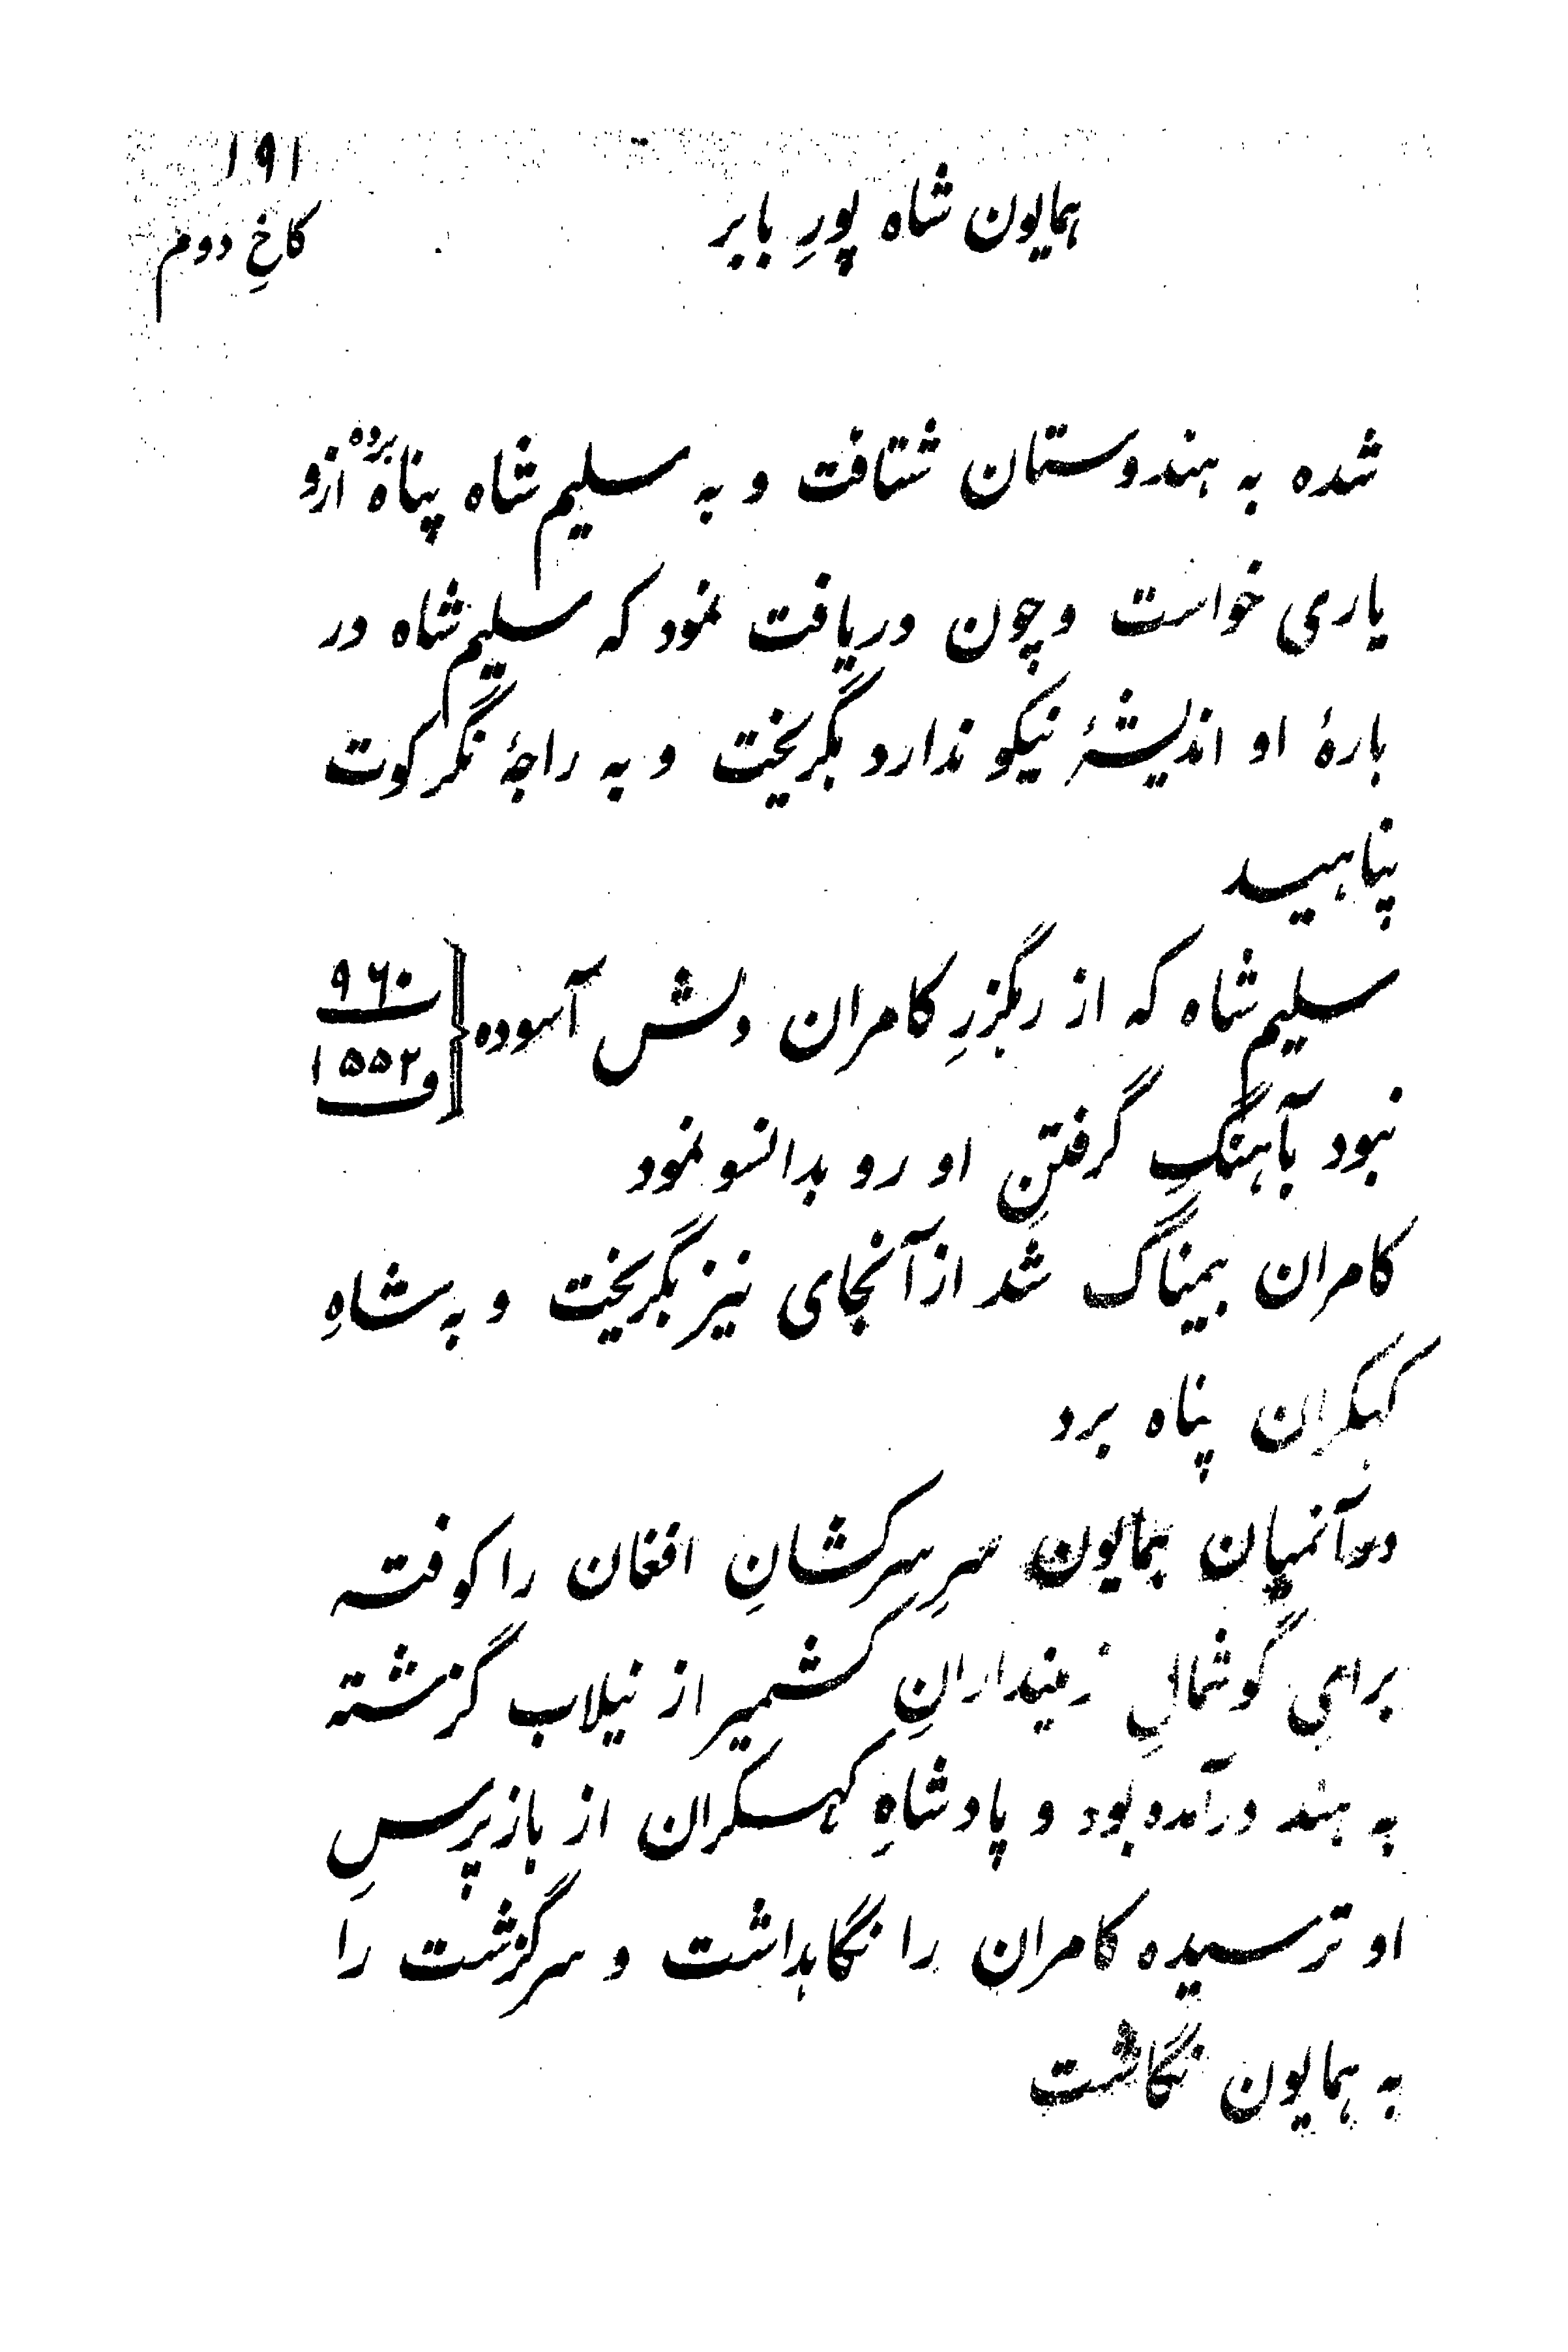 ۱۹۱
همایون شاه پورِ بابر
کاخِ دوم
شده به هندوستان شتافت و به سلیم شاه پناه برده ازو
یاری خواست و چون دریافت نمود که سلیم شاه در
بارهٔ او اندیشهٔ نیکو ندارد بگریخت و به راجهٔ نگرکوت
پناهید
سلیم شاه که از رهگزرِ کامران دلش آسوده
۹۶۰
۱۵۵۲
نبود بآهنگِ گرفتنِ او رو بدانسو نمود
کامران بیمناک شد از آنجای نیز بگریخت و به شاهِ
کهکران پناه برد
در آنمیان همایون سرِ سرکشانِ افغان را کوفته
برای گوشمالِ زمیندارانِ کشمیر از نیلاب گزشته
به هند درآمده بود و پادشاهِ کهکران از بازپرسِ
او ترسیده کامران را نگاهداشت و سرگزشت را
به همایون نگاشت